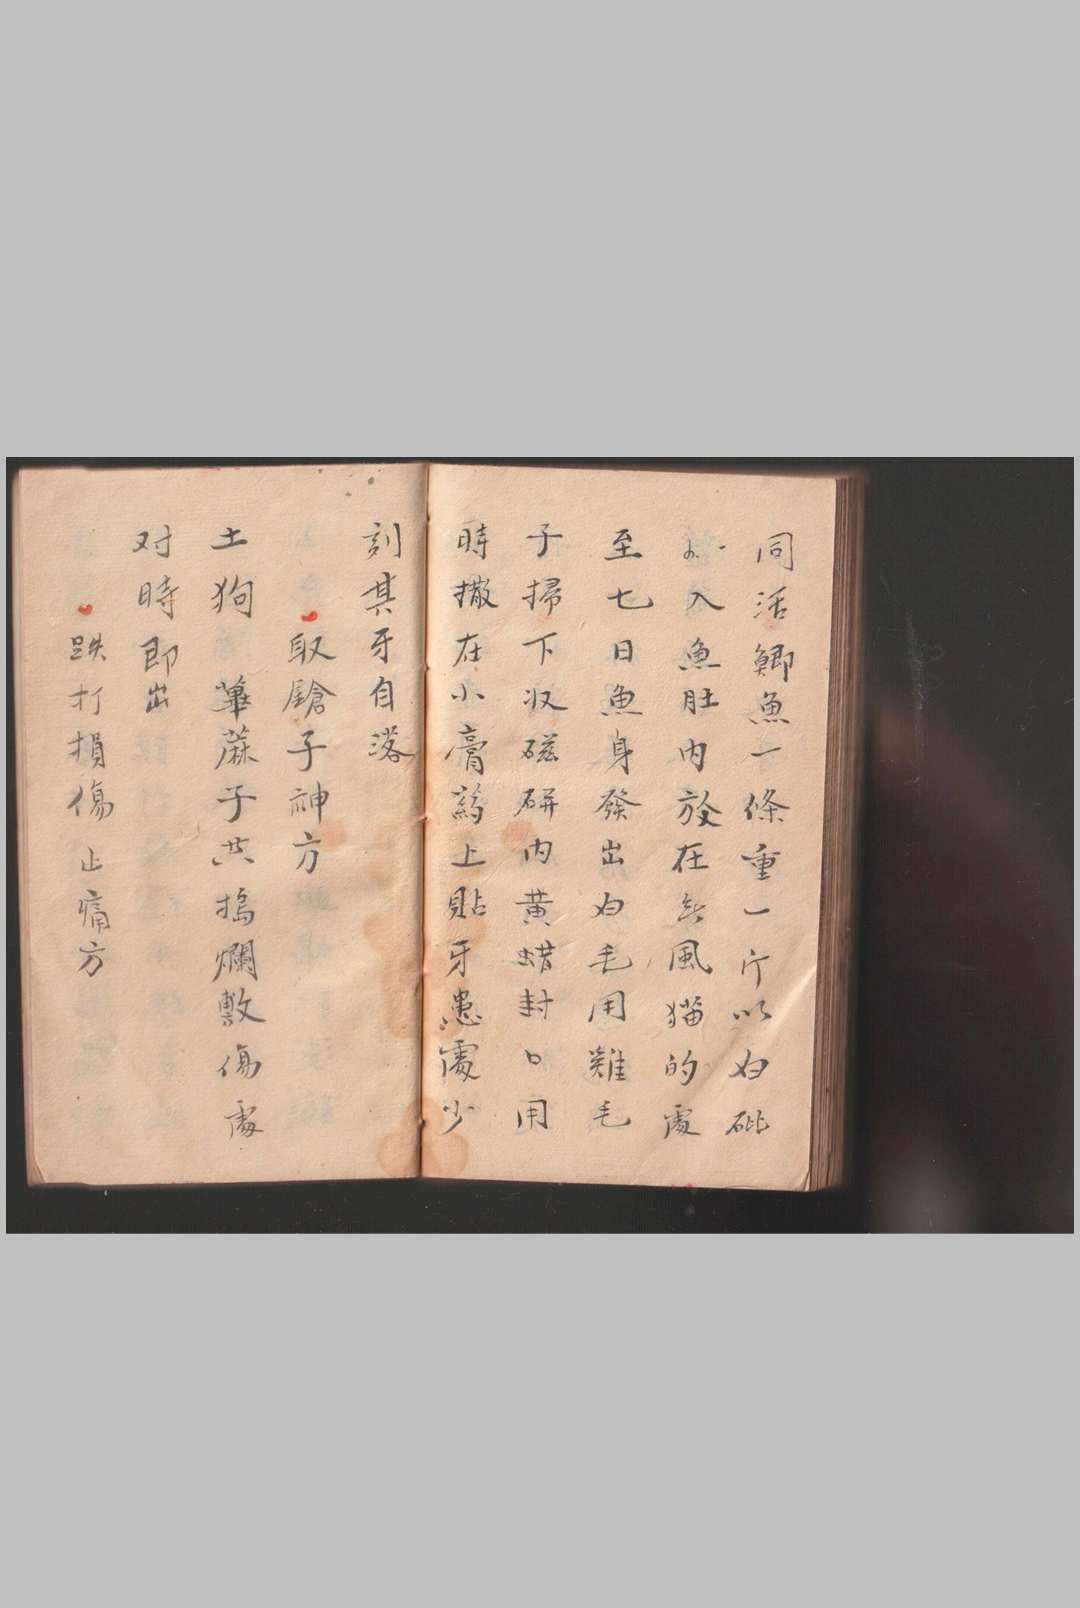 同活鯽魚一條重一斤以白砒
入魚肚内放在無風猫的處
至七日魚身發出白毛用雞毛
子掃下收磁瓶内黄蜡封口用
時撒在小膏药上貼牙患處少
刻其牙自落
取鎗子神方
土狗 蓖蔴子共搗爛敷傷處
对時即出
跌打損傷止痛方